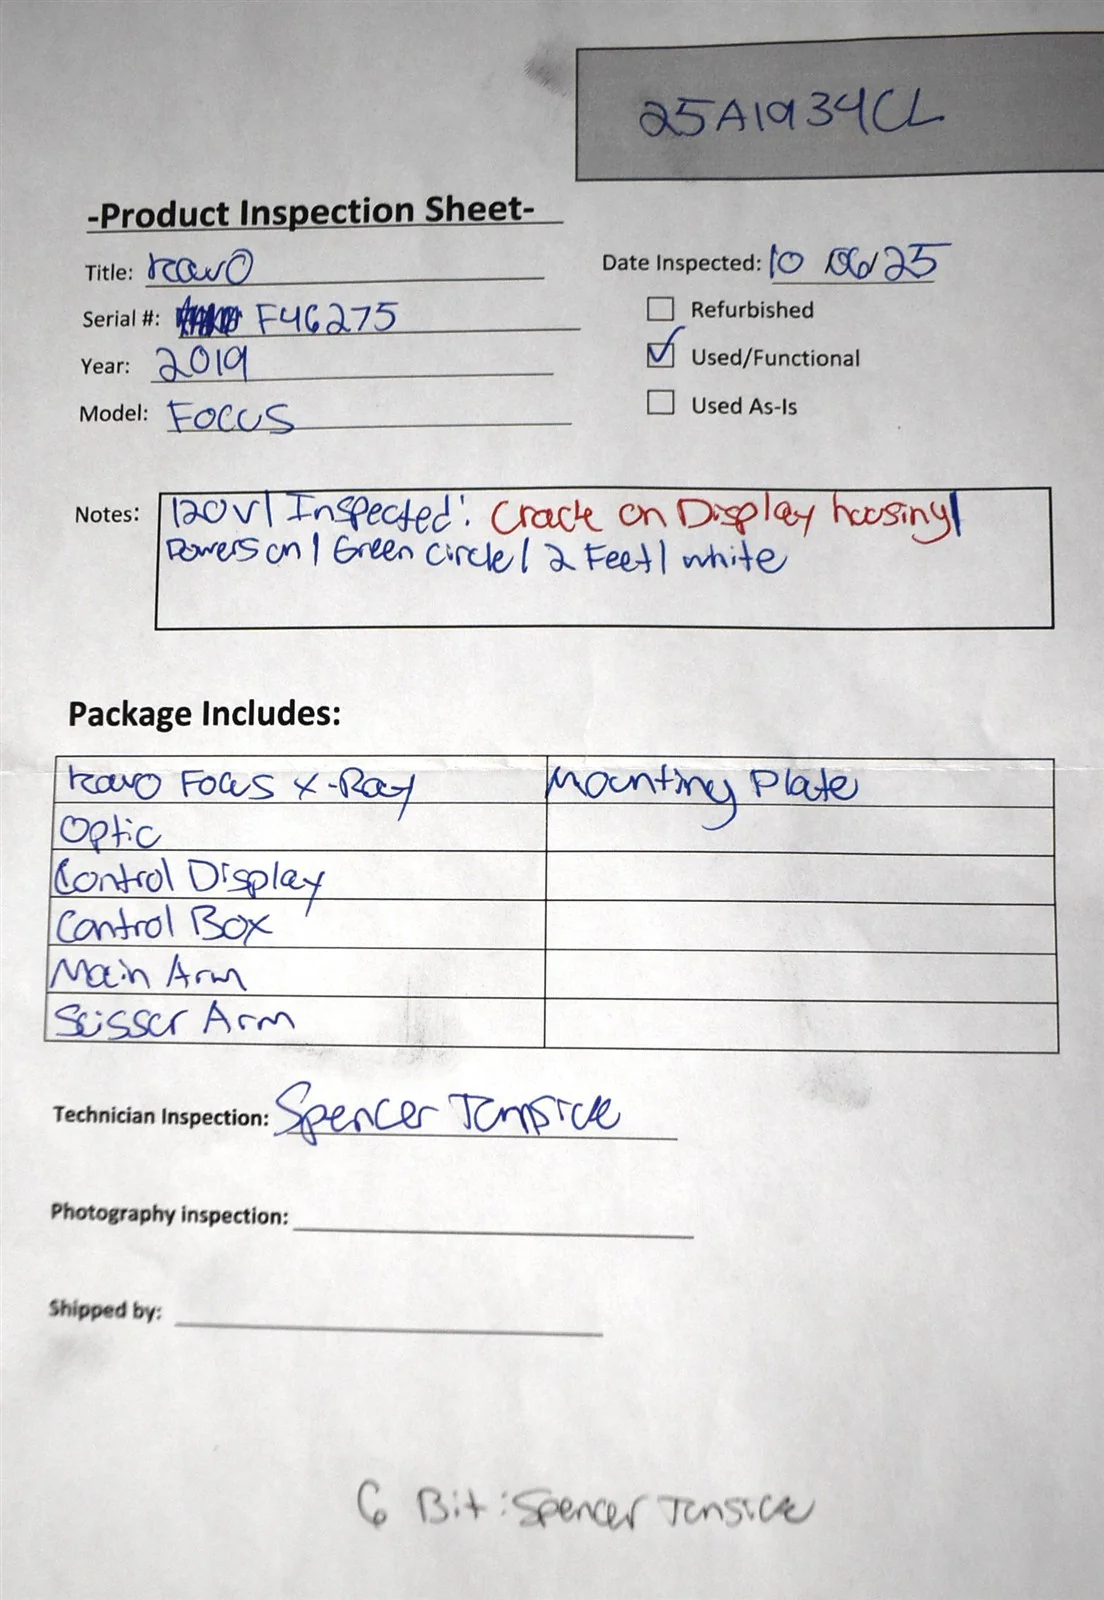 25A1934CL
-Product Inspection Sheet-
Title: Kavo
Date Inspected: 10 06/25
Serial #: F46275
Refurbished
Year: 2019
Used/Functional
Model: Focus
Used As-Is
Notes: 120V| Inspected: Crack on Display housing|
Powers on | Green Circle | 2 Feet| white
Package Includes:
Kavo Focus X-Ray Mounting Plate
Optic
Control Display
Control Box
Main Arm
Scissor Arm
Technician Inspection: Spencer
Photography inspection:
Shipped by:
Bit: Spencer